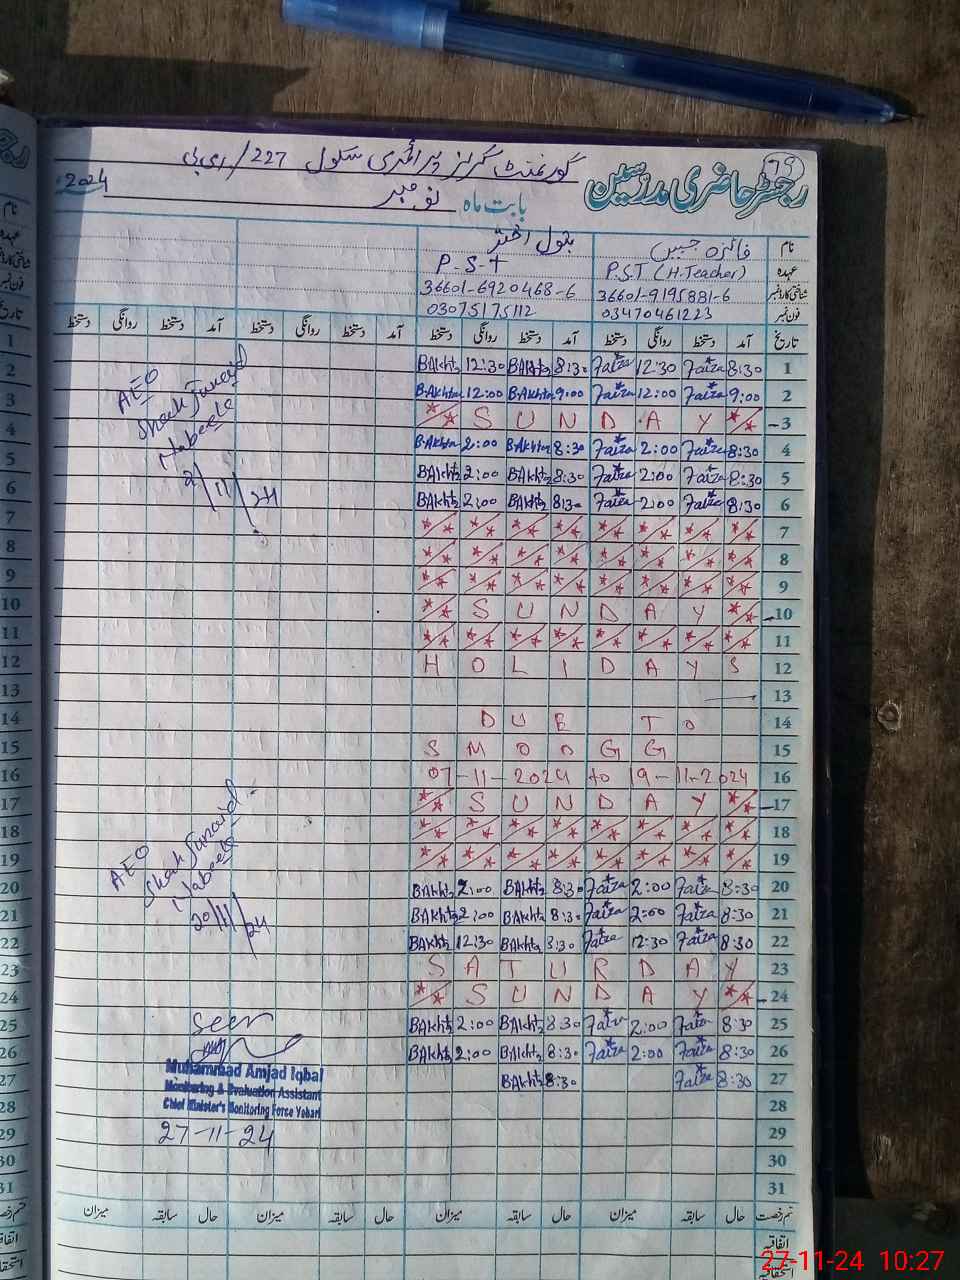 79
رجسٹر حاضری مدرسین
گورنمنٹ گرلز پرائمری سکول 227/ ای بی
بابت ماہ نومبر 2024
نام فائزہ جبیں بتول اختر
عہدہ P.S.T (H.Teacher) P.S.T
شناختی کارڈ نمبر 36601-9195881-6 36601-6920468-6
فون نمبر 03470461223 03075175112
تاریخ آمد دستخط روانگی دستخط آمد دستخط روانگی دستخط آمد دستخط روانگی دستخط آمد دستخط روانگی دستخط
1 8:30 Faiza 12:30 Faiza 8:30 BAkhtr 12:30 BAkhtr
2 9:00 Faiza 12:00 Faiza 9:00 BAkhtr 12:00 BAkhtr
3 SUNDAY
4 8:30 Faiza 2:00 Faiza 8:30 BAkhtr 2:00 BAkhtr
5 8:30 Faiza 2:00 Faiza 8:30 BAkhtr 2:00 BAkhtr
6 8:30 Faiza 2:00 Faiza 8:30 BAkhtr 2:00 BAkhtr
7
8
9
10 SUNDAY
11
12 HOLIDAYS
13
14 DUE TO
15 SMOOGG
16 07-11-2024 to 19-11-2024
17 SUNDAY
18
19
20 8:30 Faiza 2:00 Faiza 8:30 BAkhtr 2:00 BAkhtr
21 8:30 Faiza 2:00 Faiza 8:30 BAkhtr 2:00 BAkhtr
22 8:30 Faiza 12:30 Faiza 8:30 BAkhtr 12:30 BAkhtr
23 SATURDAY
24 SUNDAY
25 8:30 Faiza 2:00 Faiza 8:30 BAkhtr 2:00 BAkhtr
26 8:30 Faiza 2:00 Faiza 8:30 BAkhtr 2:00 BAkhtr
27 8:30 Faiza 8:30 BAkhtr
28
29
30
31
AEO
Shah Junaid
Nabeela
2/11/24
AEO
Shah Junaid
Nabeela
20/11/24
Seen
Muhammad Amjad Iqbal
Monitoring & Evaluation Assistant
Chief Minister's Monitoring Force Vehari
27-11-24
حال سابقہ میزان حال سابقہ میزان حال سابقہ میزان حال سابقہ میزان
اتفاقیہ
استحقاقیہ
27-11-24 10:27